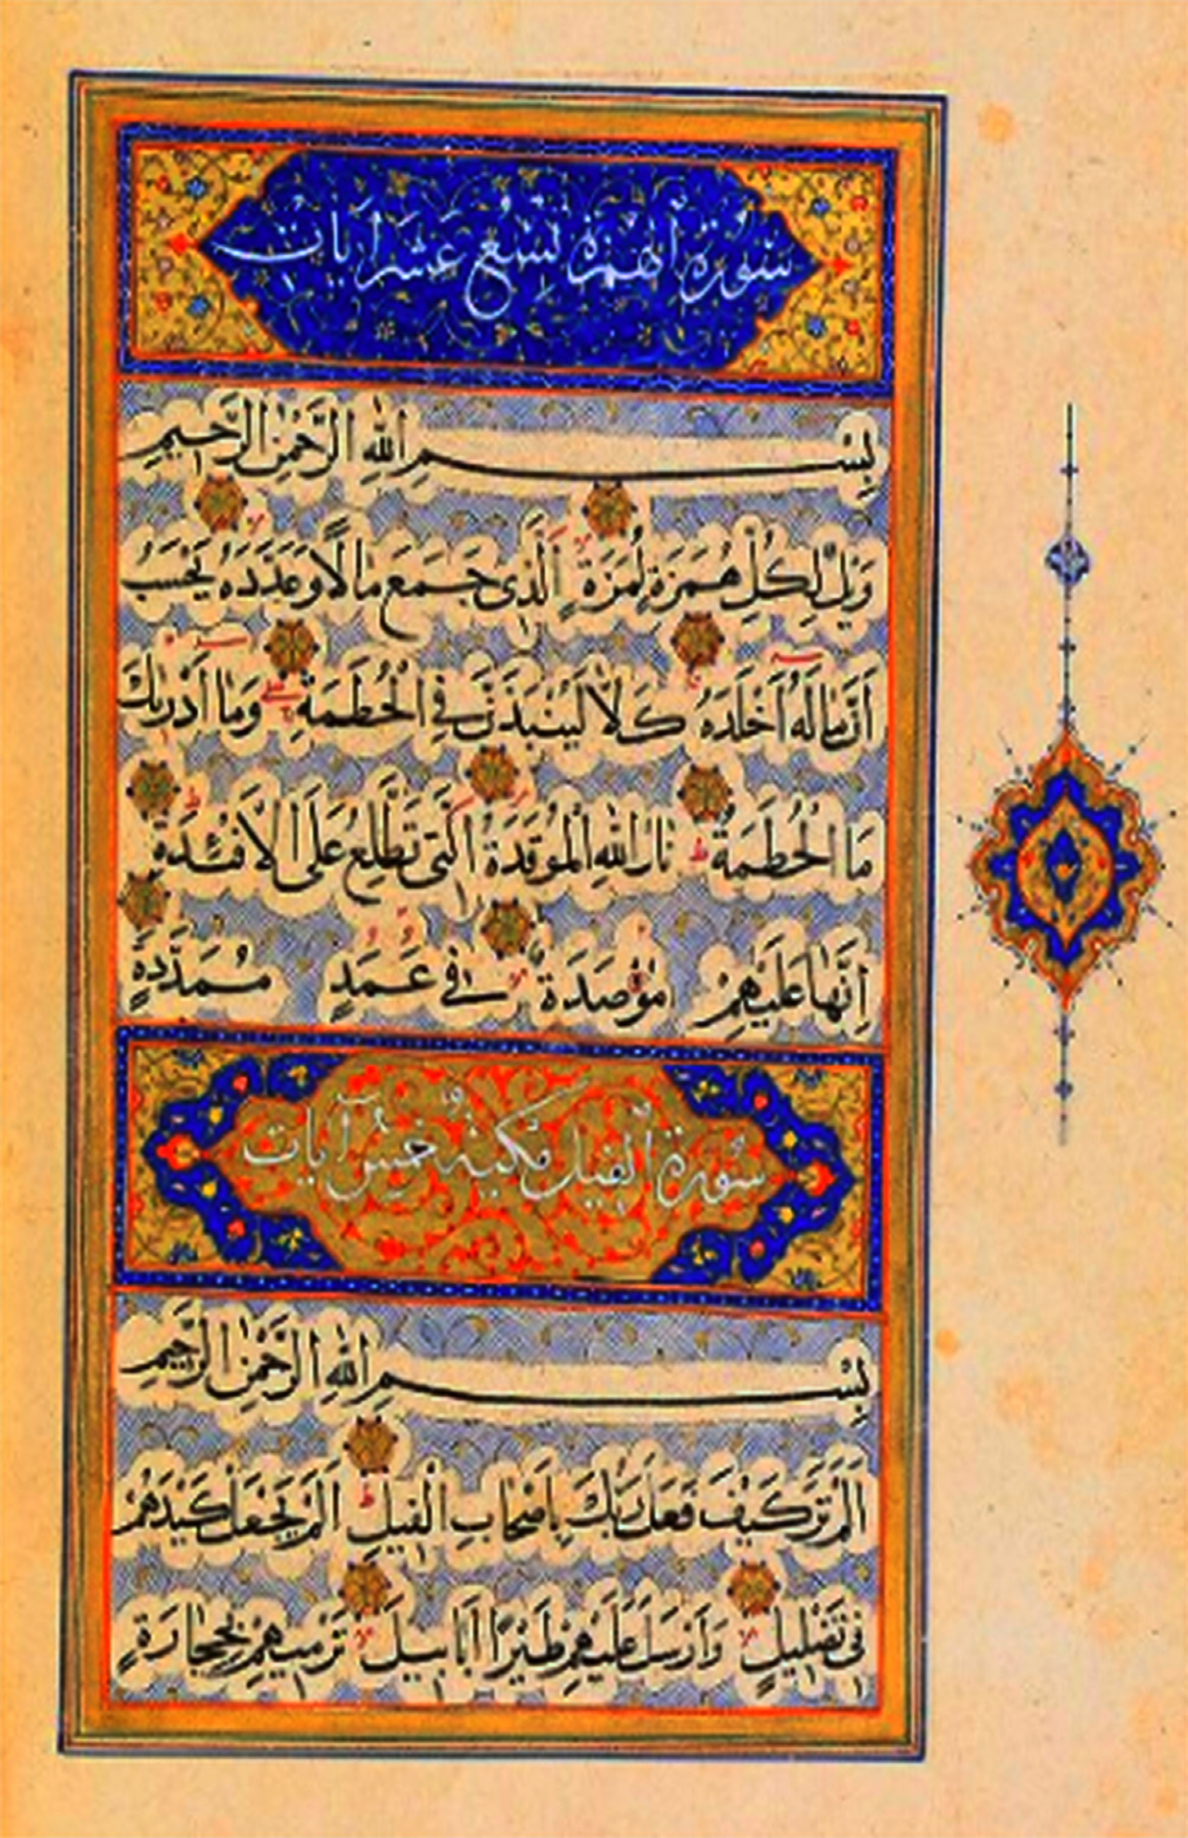 سُورَةُ الهُمَزَةِ تِسْعُ عَشَرَ اٰيَات
بِسْمِ اللهِ الرَّحْمٰنِ الرَّحِيمِ
وَيْلٌ لِكُلِّ هُمَزَةٍ لُمَزَةٍ الَّذِى جَمَعَ مَالًا وَعَدَّدَهُ يَحْسَبُ
اَنَّ مَالَهُ اَخْلَدَهُ كَلَّا لَيُنْبَذَنَّ فِى الْحُطَمَةِ وَمَا اَدْرٰيكَ
مَا الْحُطَمَةُ نَارُ اللهِ الْمُوقَدَةُ الَّتِى تَطَّلِعُ عَلَى الْاَفْئِدَةِ
اِنَّهَا عَلَيْهِمْ مُؤْصَدَةٌ فِى عَمَدٍ مُمَدَّدَةٍ
سُورَةُ الْفِيلِ مَكِّيَّةٌ خَمْسُ اٰيَات
بِسْمِ اللهِ الرَّحْمٰنِ الرَّحِيمِ
اَلَمْ تَرَ كَيْفَ فَعَلَ رَبُّكَ بِاَصْحَابِ الْفِيلِ اَلَمْ يَجْعَلْ كَيْدَهُمْ
فِى تَضْلِيلٍ وَاَرْسَلَ عَلَيْهِمْ طَيْرًا اَبَابِيلَ تَرْمِيهِمْ بِحِجَارَةٍ